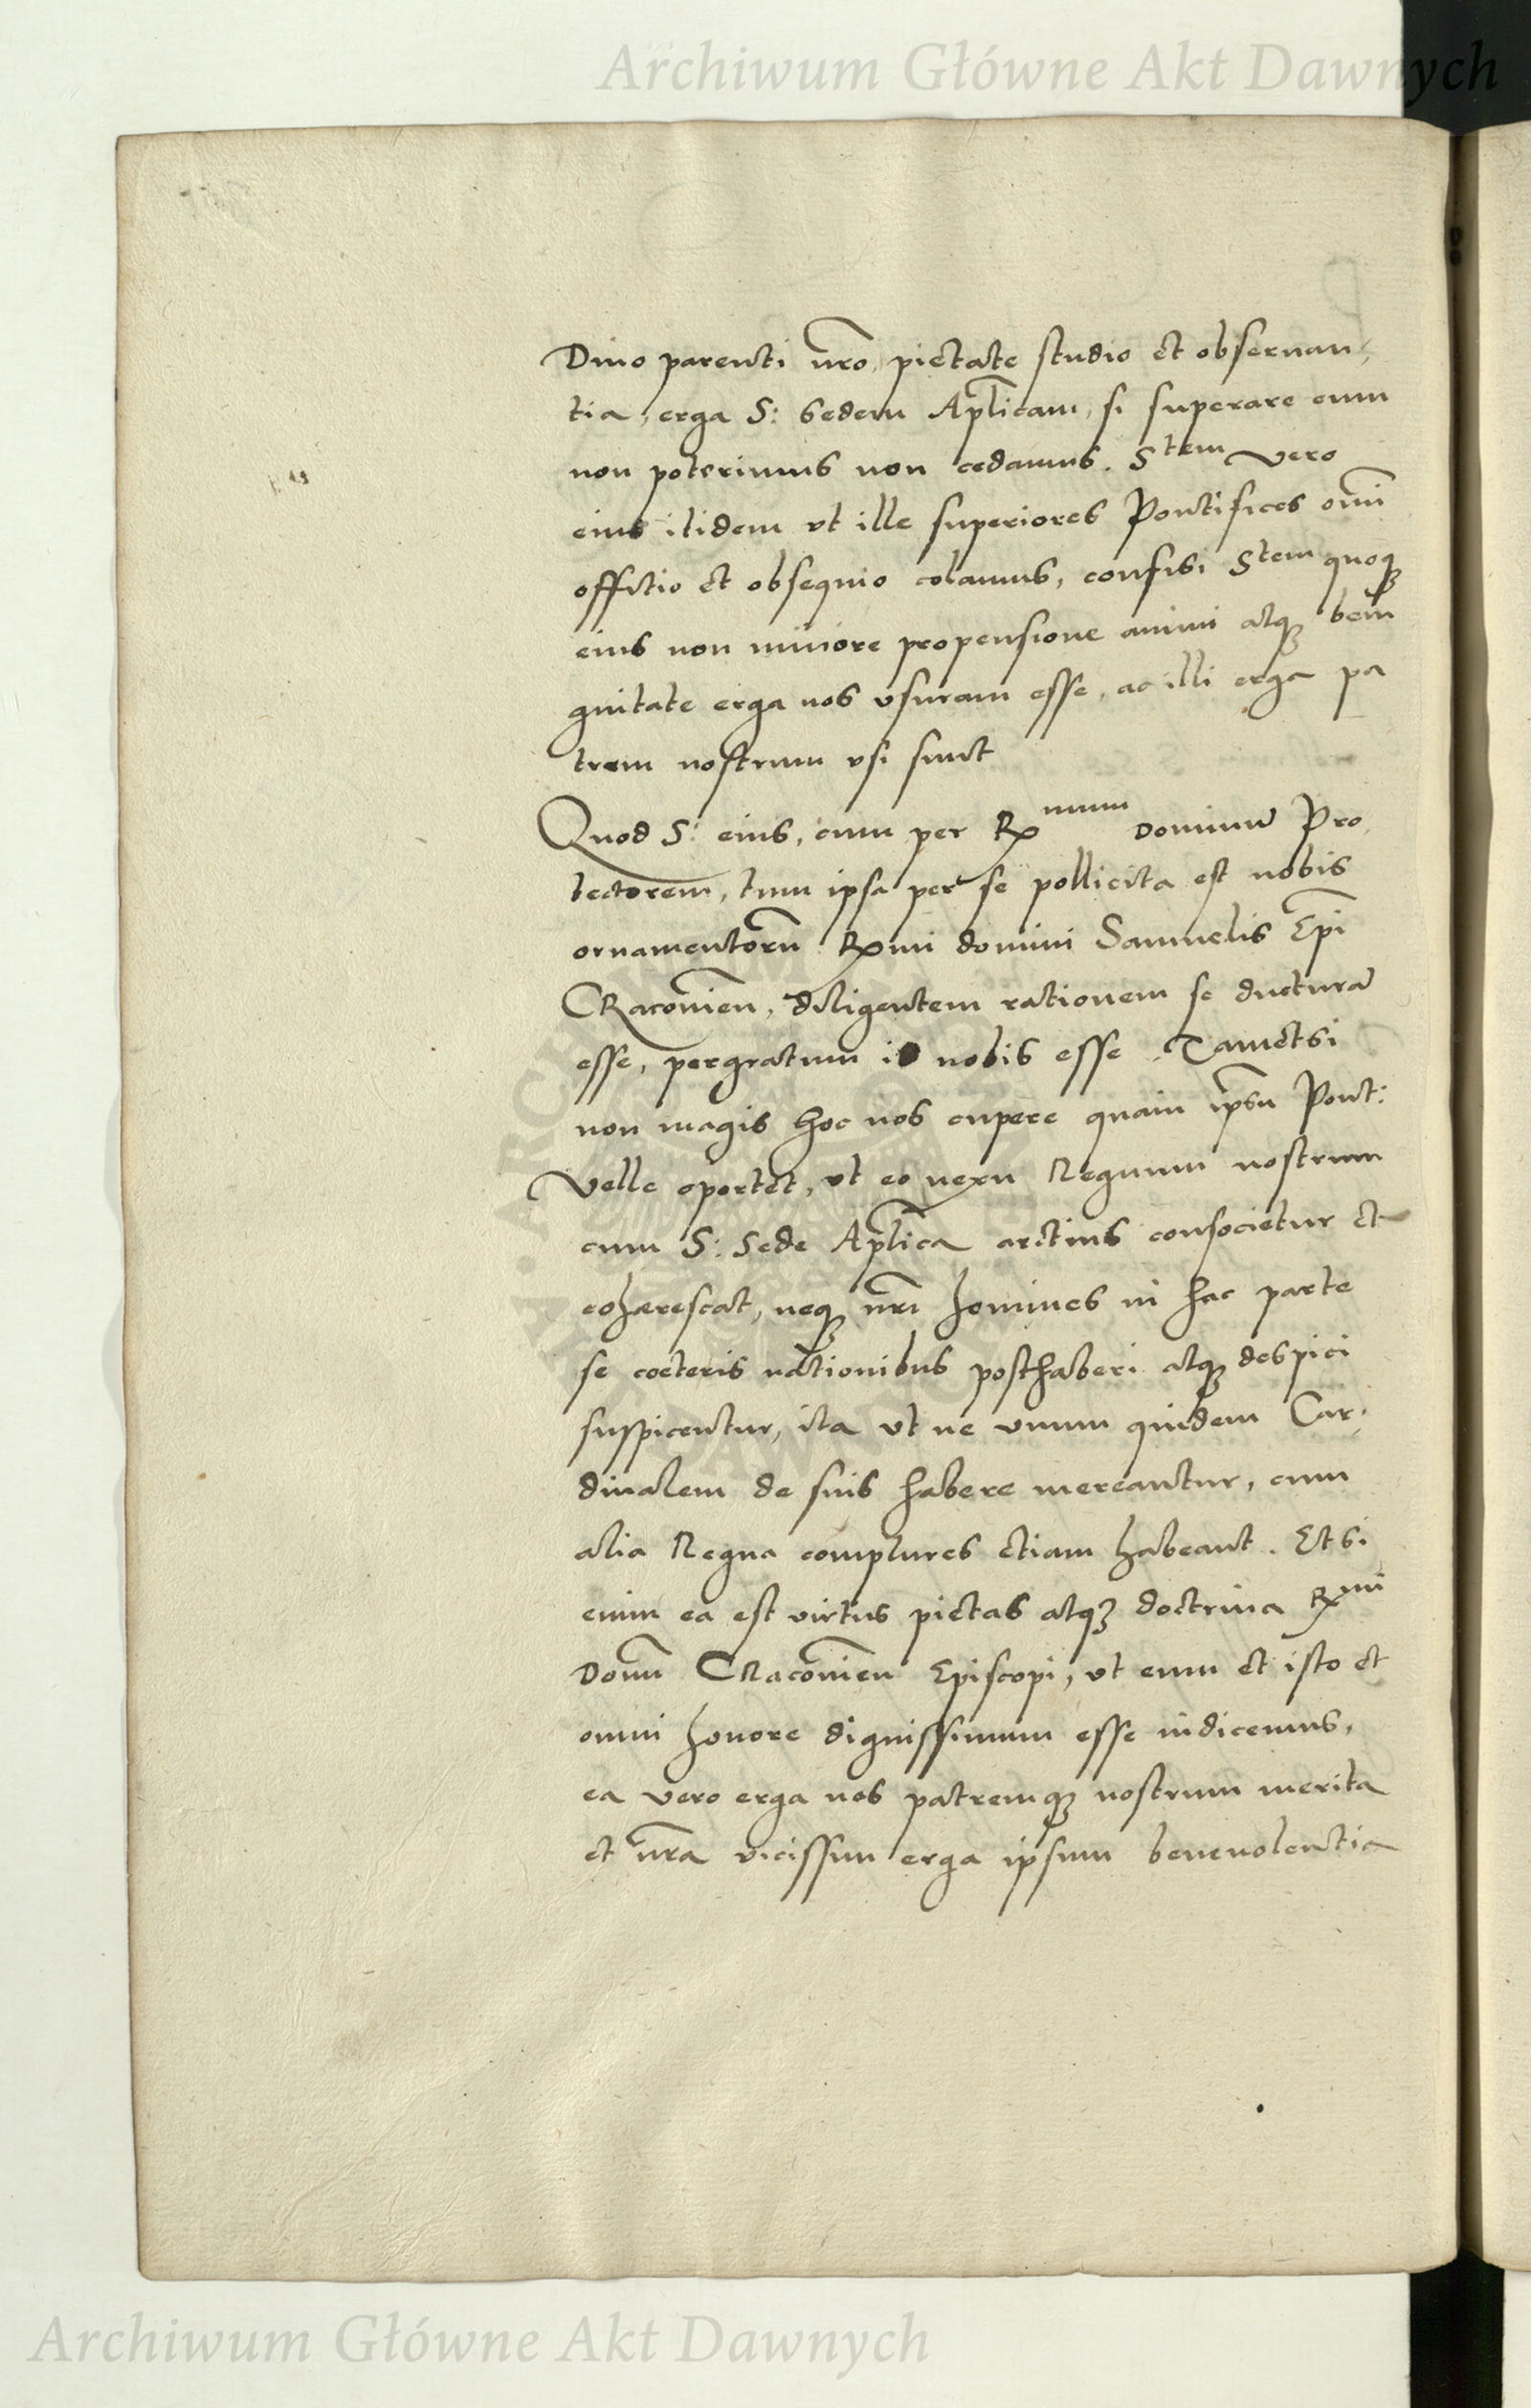 Archiwum Główne Akt Dawnych
Diuo parenti n̄ro, pietate studio et obseruan,
tia, erga S: Sedem Apl̄icam, si superare eum
non poterimus non cedamus. Stem vero
eius itidem vt ille superiores Pontifices om̄i
offitio et obsequio colamus, confisi Stem quoq;
eius non minore propensione animi atq; beni
gnitate erga nos vsuram esse, ac illi erga pa
trem nostrum vsi sunt
Quod S: eius, cum per Rmum Dominū Pro,
tectorem, tum ipsa per se pollicita est nobis
ornamentorū Rmi domini Samuelis Ep̄i
CRacouien̄, diligentem rationem se ducturā
esse, pergratum id nobis esse. Tametsi
non magis hoc nos cupere quam ip̄su Pont:
velle oportet, vt eo nexu Regnum nostrum
cum S: Sede Apl̄ica arctius consocietur et
cohærescat, neq; n̄ri homines in hac parte
se cœteris nationibus posthaberi atq; despici
suspicentur, ita vt ne vnum quidem Car,
dinalem de suis habere mereantur, cum
alia Regna complures etiam habeant. Etsi
enim ea est virtus pietas atq; doctrina Rmi
Domī CRacouien̄ Episcopi, vt eum et isto et
omni honore dignissimum esse iudicemus,
ea vero erga nos patremq; nostrum merita
et n̄ra vicissim erga ipsum beneuolentia
Archiwum Główne Akt Dawnych